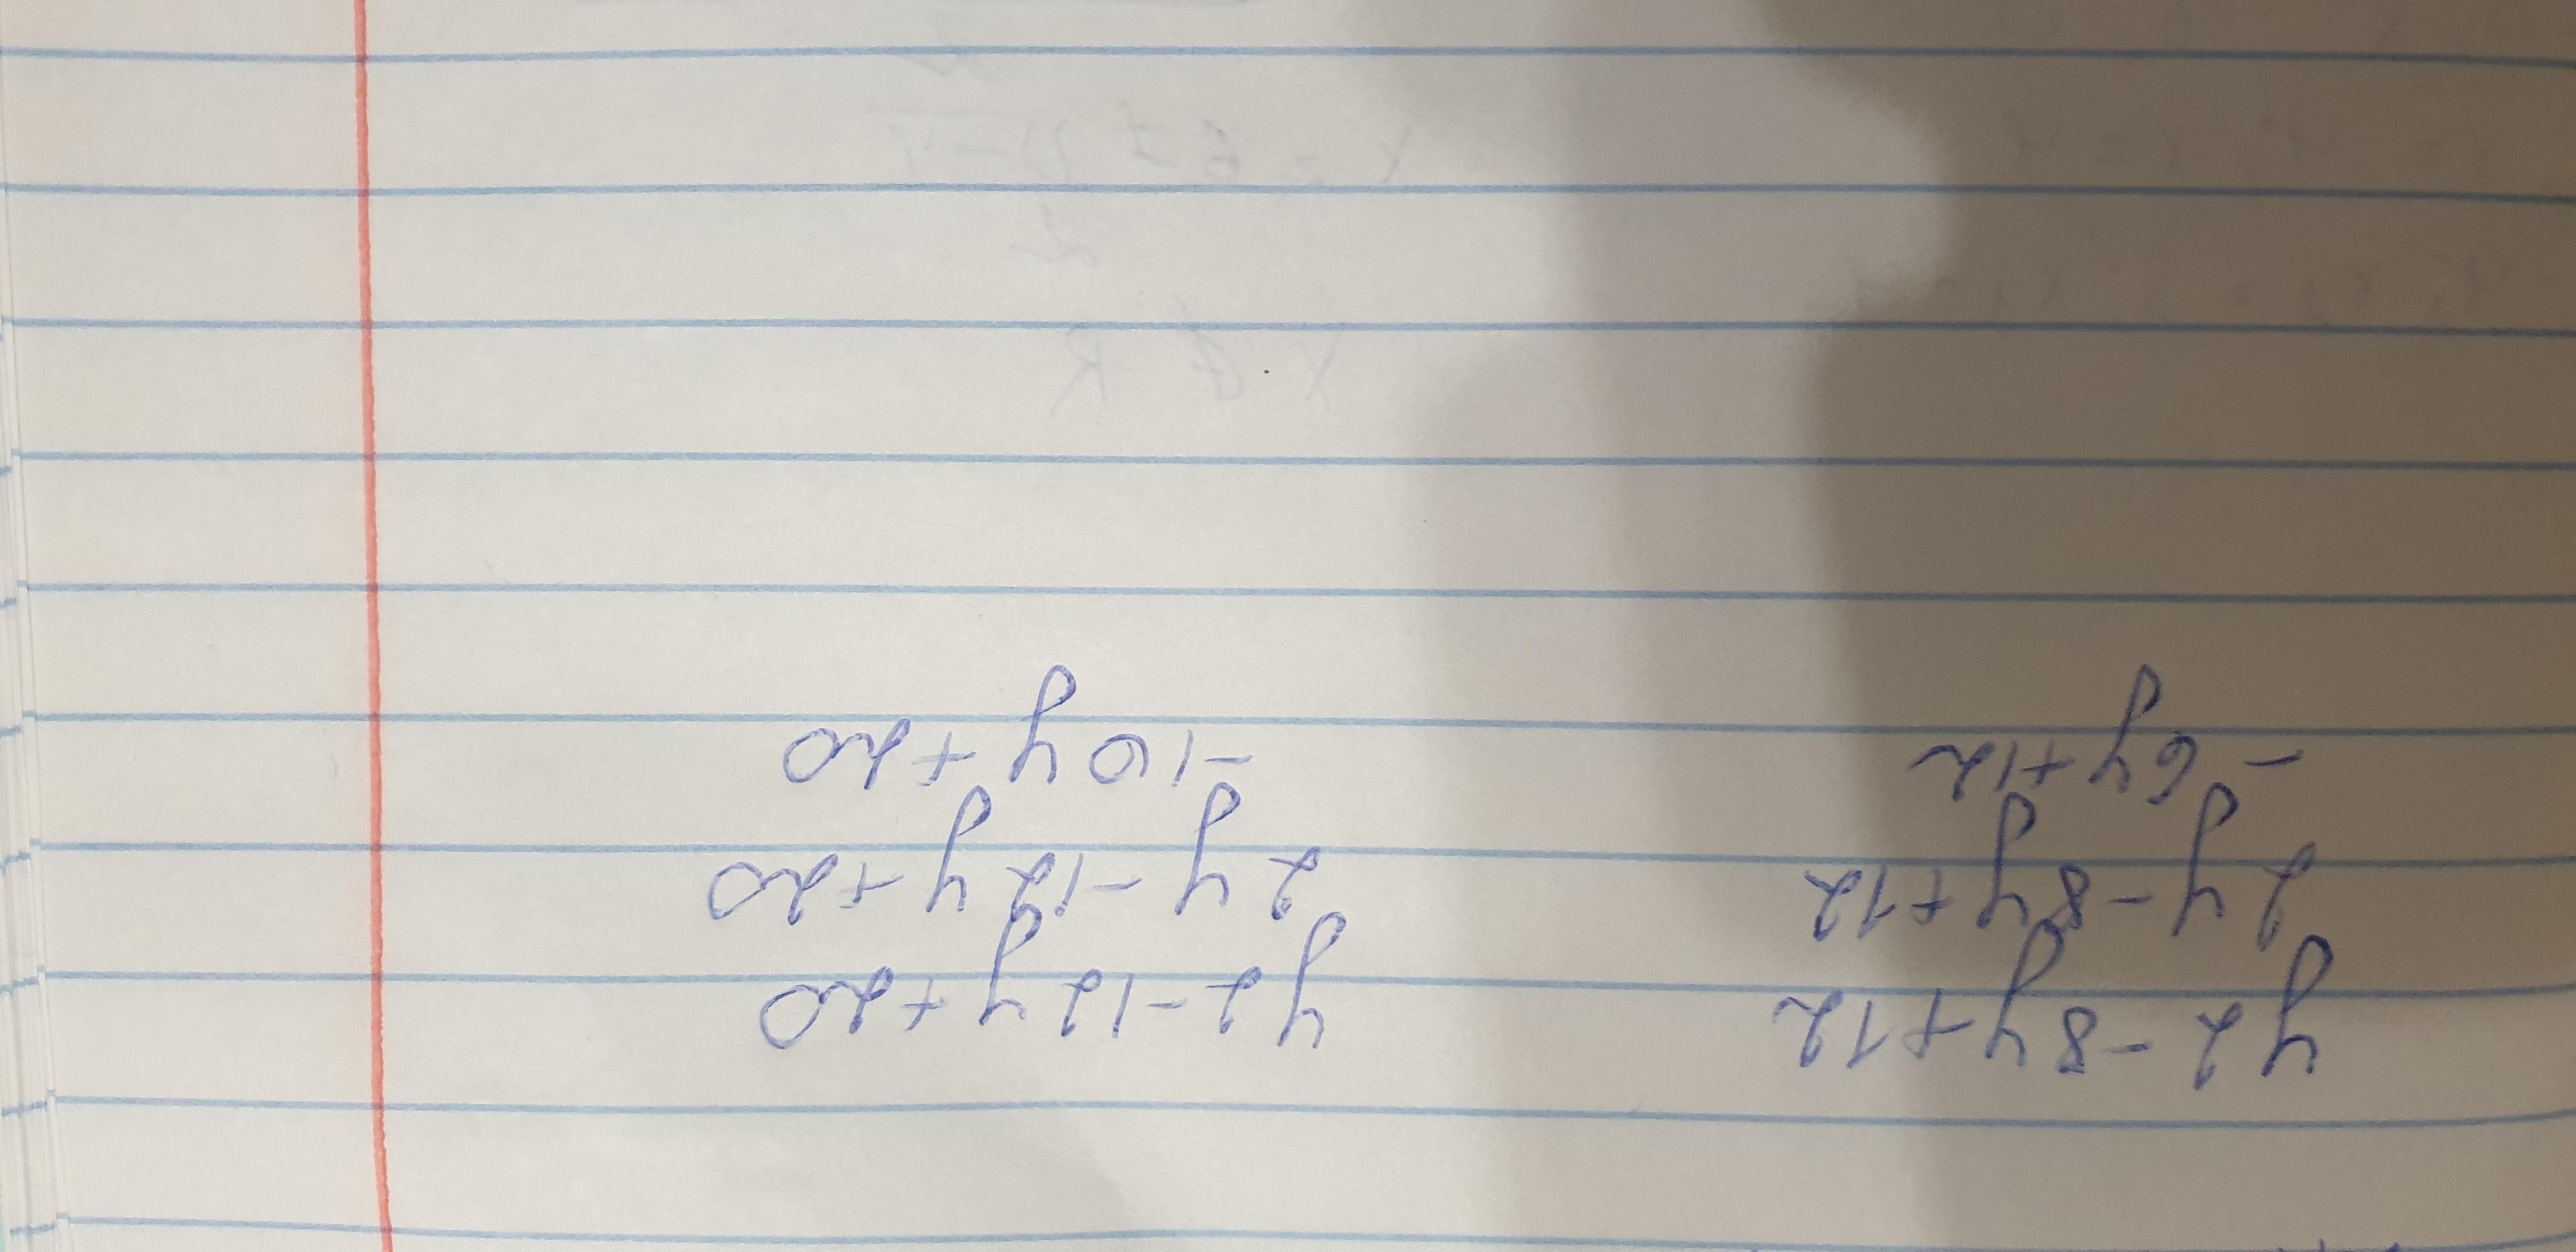 y2-8y+12
2y-8y+12
-6y+12
y2-12y+20
2y-12y+20
-10y+20